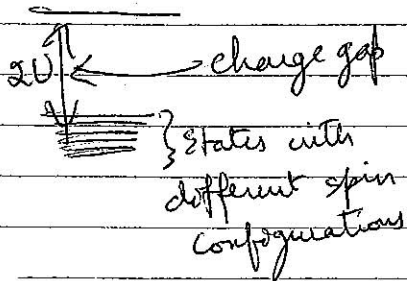 2U
charge gap
States with
different spin
configurations